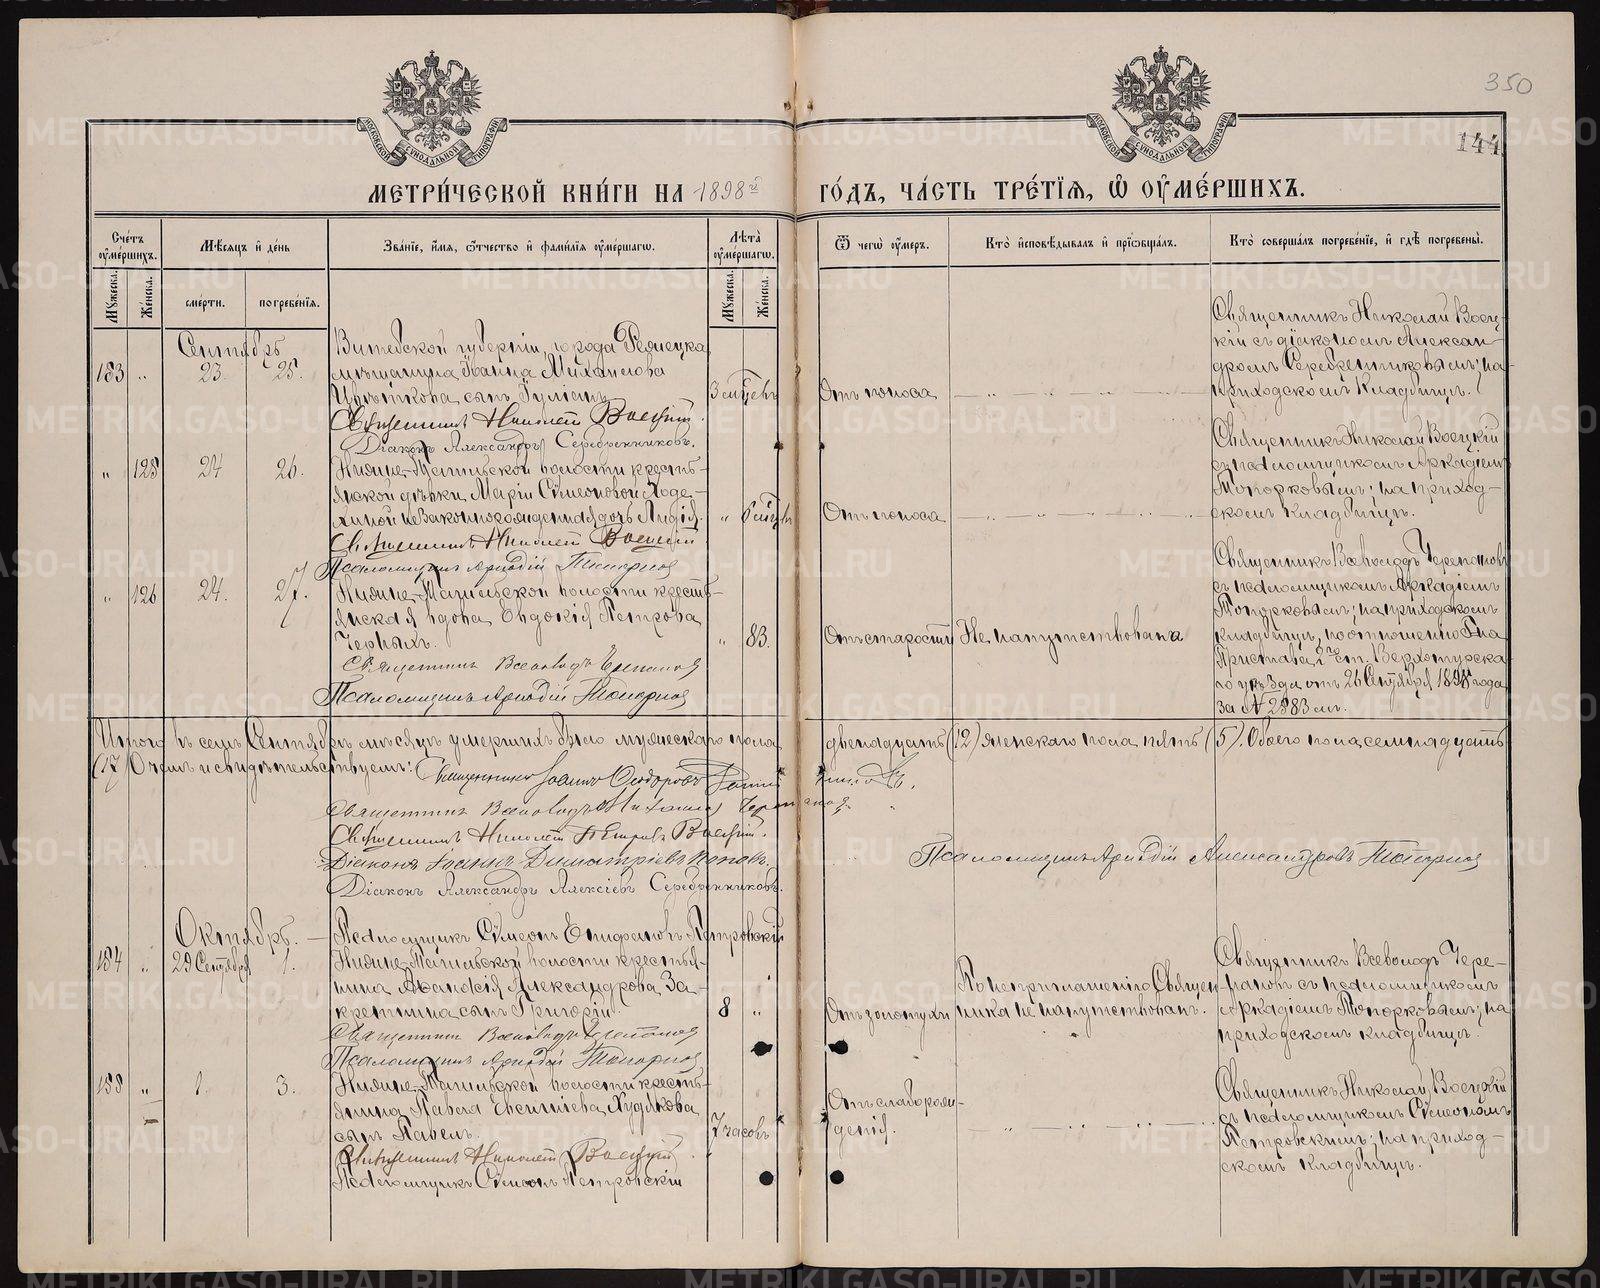 350
144
МОСКОВСКОЙ СѴНОДАЛЬНОЙ ТИПОГРАФІИ
МОСКОВСКОЙ СѴНОДАЛЬНОЙ ТИПОГРАФІИ
МЕТРИ́ЧЕСКОЙ КНИ́ГИ НА 1898й ГО́ДЪ, ЧА́СТЬ ТРЕ́ТІѦ, Ѡ҆ ОУ҆МЕ́РШИХЪ.
Сче́тъ оу҆ме́ршихъ.
Мꙋ́жеска.
Же́нска.
Мѣ́сяцъ и҆ де́нь
сме́рти.
погребе́нїѧ.
Зва́нїе, и҆́мѧ, ѻ҆́тчество и҆ фами́лїѧ оу҆ме́ршагѡ.
Лѣ́та оу҆ме́ршагѡ.
Мꙋ́жеска.
Же́нска.
Ѿ чегѡ̀ оу҆́меръ.
Кто̀ и҆сповѣ́дывалъ и҆ прїѡбща́лъ.
Кто̀ соверша́лъ погребе́нїе, и҆ гдѣ̀ погребены̀.
Сентябрь
183 " 23. 25.
Витебской губерніи, города
мѣщанина Іоанна Михаилова
Цвѣткова сынъ Іуліанъ.
Священникъ Николай Воецкій.
Діаконъ Александръ Серебренниковъ.
Отъ поноса
Священникъ Николай Воец-
кій съ діакономъ Алексан-
дромъ Серебренниковымъ; на
приходскомъ кладбищѣ.
" 125 24 26.
Нижне-Тагильской волости кресть-
янской дѣвки Маріи Сѵмеоновой
незаконнорожденная дочь Лидія.
Священникъ Николай Воецкій
Псаломщикъ Аркадій Топорков
Отъ поноса
Священникъ Николай Воецкій
съ псаломщикомъ Аркадіемъ
Топорковымъ; на приход-
скомъ кладбищѣ.
" 126 24. 27.
Нижне-Тагильской волости кресть-
янская вдова Евдокія Петрова
Черныхъ.
Священникъ Всеволодъ Черепанов
Псаломщикъ Аркадій Топорков
" 83.
Отъ старости
Не напутствована
Священникъ Всеволодъ Черепановъ
съ псаломщикомъ Аркадіемъ
Топорковымъ; на приходскомъ
кладбищѣ, по отношенію Г-на
Пристава 2 ст. Верхотурска-
го уѣзда отъ 26 Сентября 1898 года
за № 2983мъ.
Итого въ семъ Сентябрѣ мѣсяцѣ умершихъ было мужескаго пола двенадцать (12) женскаго пола пять (5). Обоего пола семнадцать
(17) О чемъ и свидѣтельствуемъ: Священникъ Іоаннъ Ѳеодоровъ
Священникъ Всеволодъ Михаилов Черепанов
Священникъ Николай Петровъ Воецкій.
Діаконъ Іоаннъ Димитріевъ Поповъ.
Діаконъ Александръ Алексіевъ Серебренниковъ.
Псаломщикъ Аркадій Александровъ Топорков
Псаломщикъ Сѵмеонъ Епифановъ Петровскій
Октябрь.
184 " 29 Сентября 1.
Нижне-Тагильской волости крестья-
нина Аѳанасія Александрова За-
сынъ Григорій.
Священникъ Всеволодъ Черепанов
Псаломщикъ Аркадій Топорков
8 "
Отъ золотухи
По неприглашенію Священ-
ника не напутствованъ.
Священникъ Всеволодъ Чере-
пановъ съ псаломщикомъ
Аркадіемъ Топорковымъ; на
приходскомъ кладбищѣ.
185 " 1. 3.
Нижне-Тагильской волости кресть-
янина Павла Евсигніева Худякова
сынъ Павелъ.
Священникъ Николай Воецкій
Псаломщикъ Сѵмеонъ Петровскій
7 часовъ
Отъ слаборож-
денія.
Священникъ Николай Воецкій
съ псаломщикомъ Сѵмеономъ
Петровскимъ; на приход-
скомъ кладбищѣ.